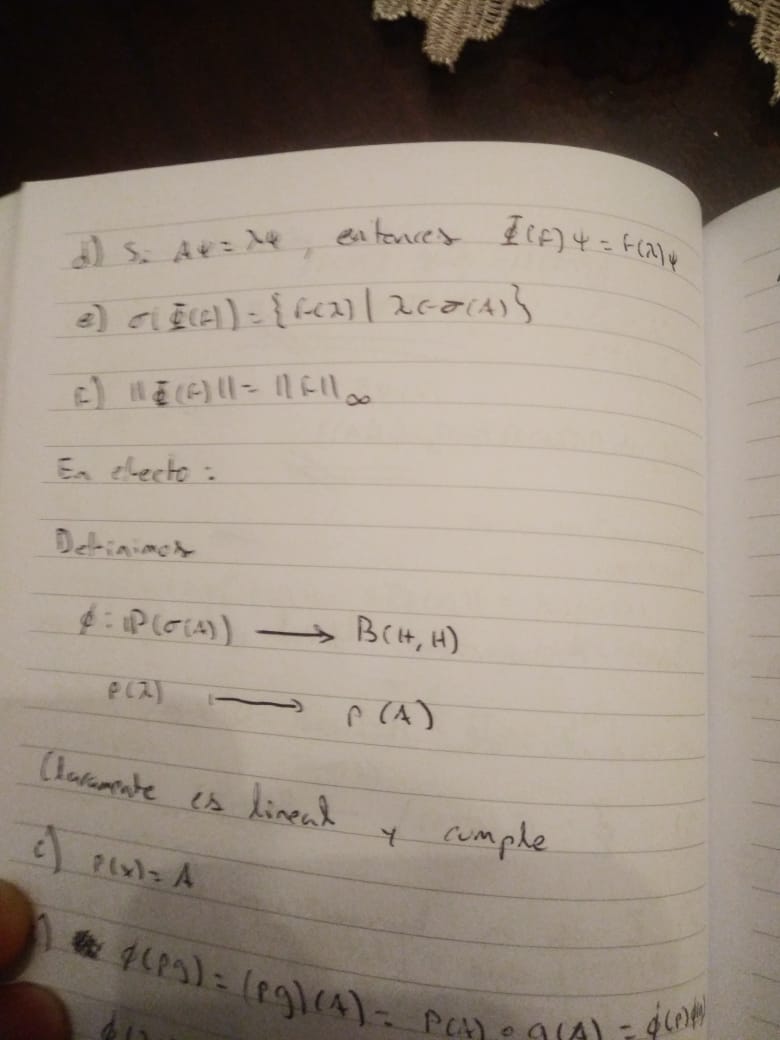 d) Si Aψ = λψ, entonces Φ(f)ψ = f(λ)ψ
e) σ(Φ(f)) = {f(λ) | λ ∈ σ(A)}
f) ||Φ(f)|| = ||f||∞
En efecto:
Definimos
ϕ: ℙ(σ(A)) ⟶ B(H, H)
p(λ) ⟼ p(A)
Claramente es lineal y cumple
c) p(x) = A
ϕ(pg) = (pg)(A) = p(A) ∘ g(A) = ϕ(p)ϕ(g)